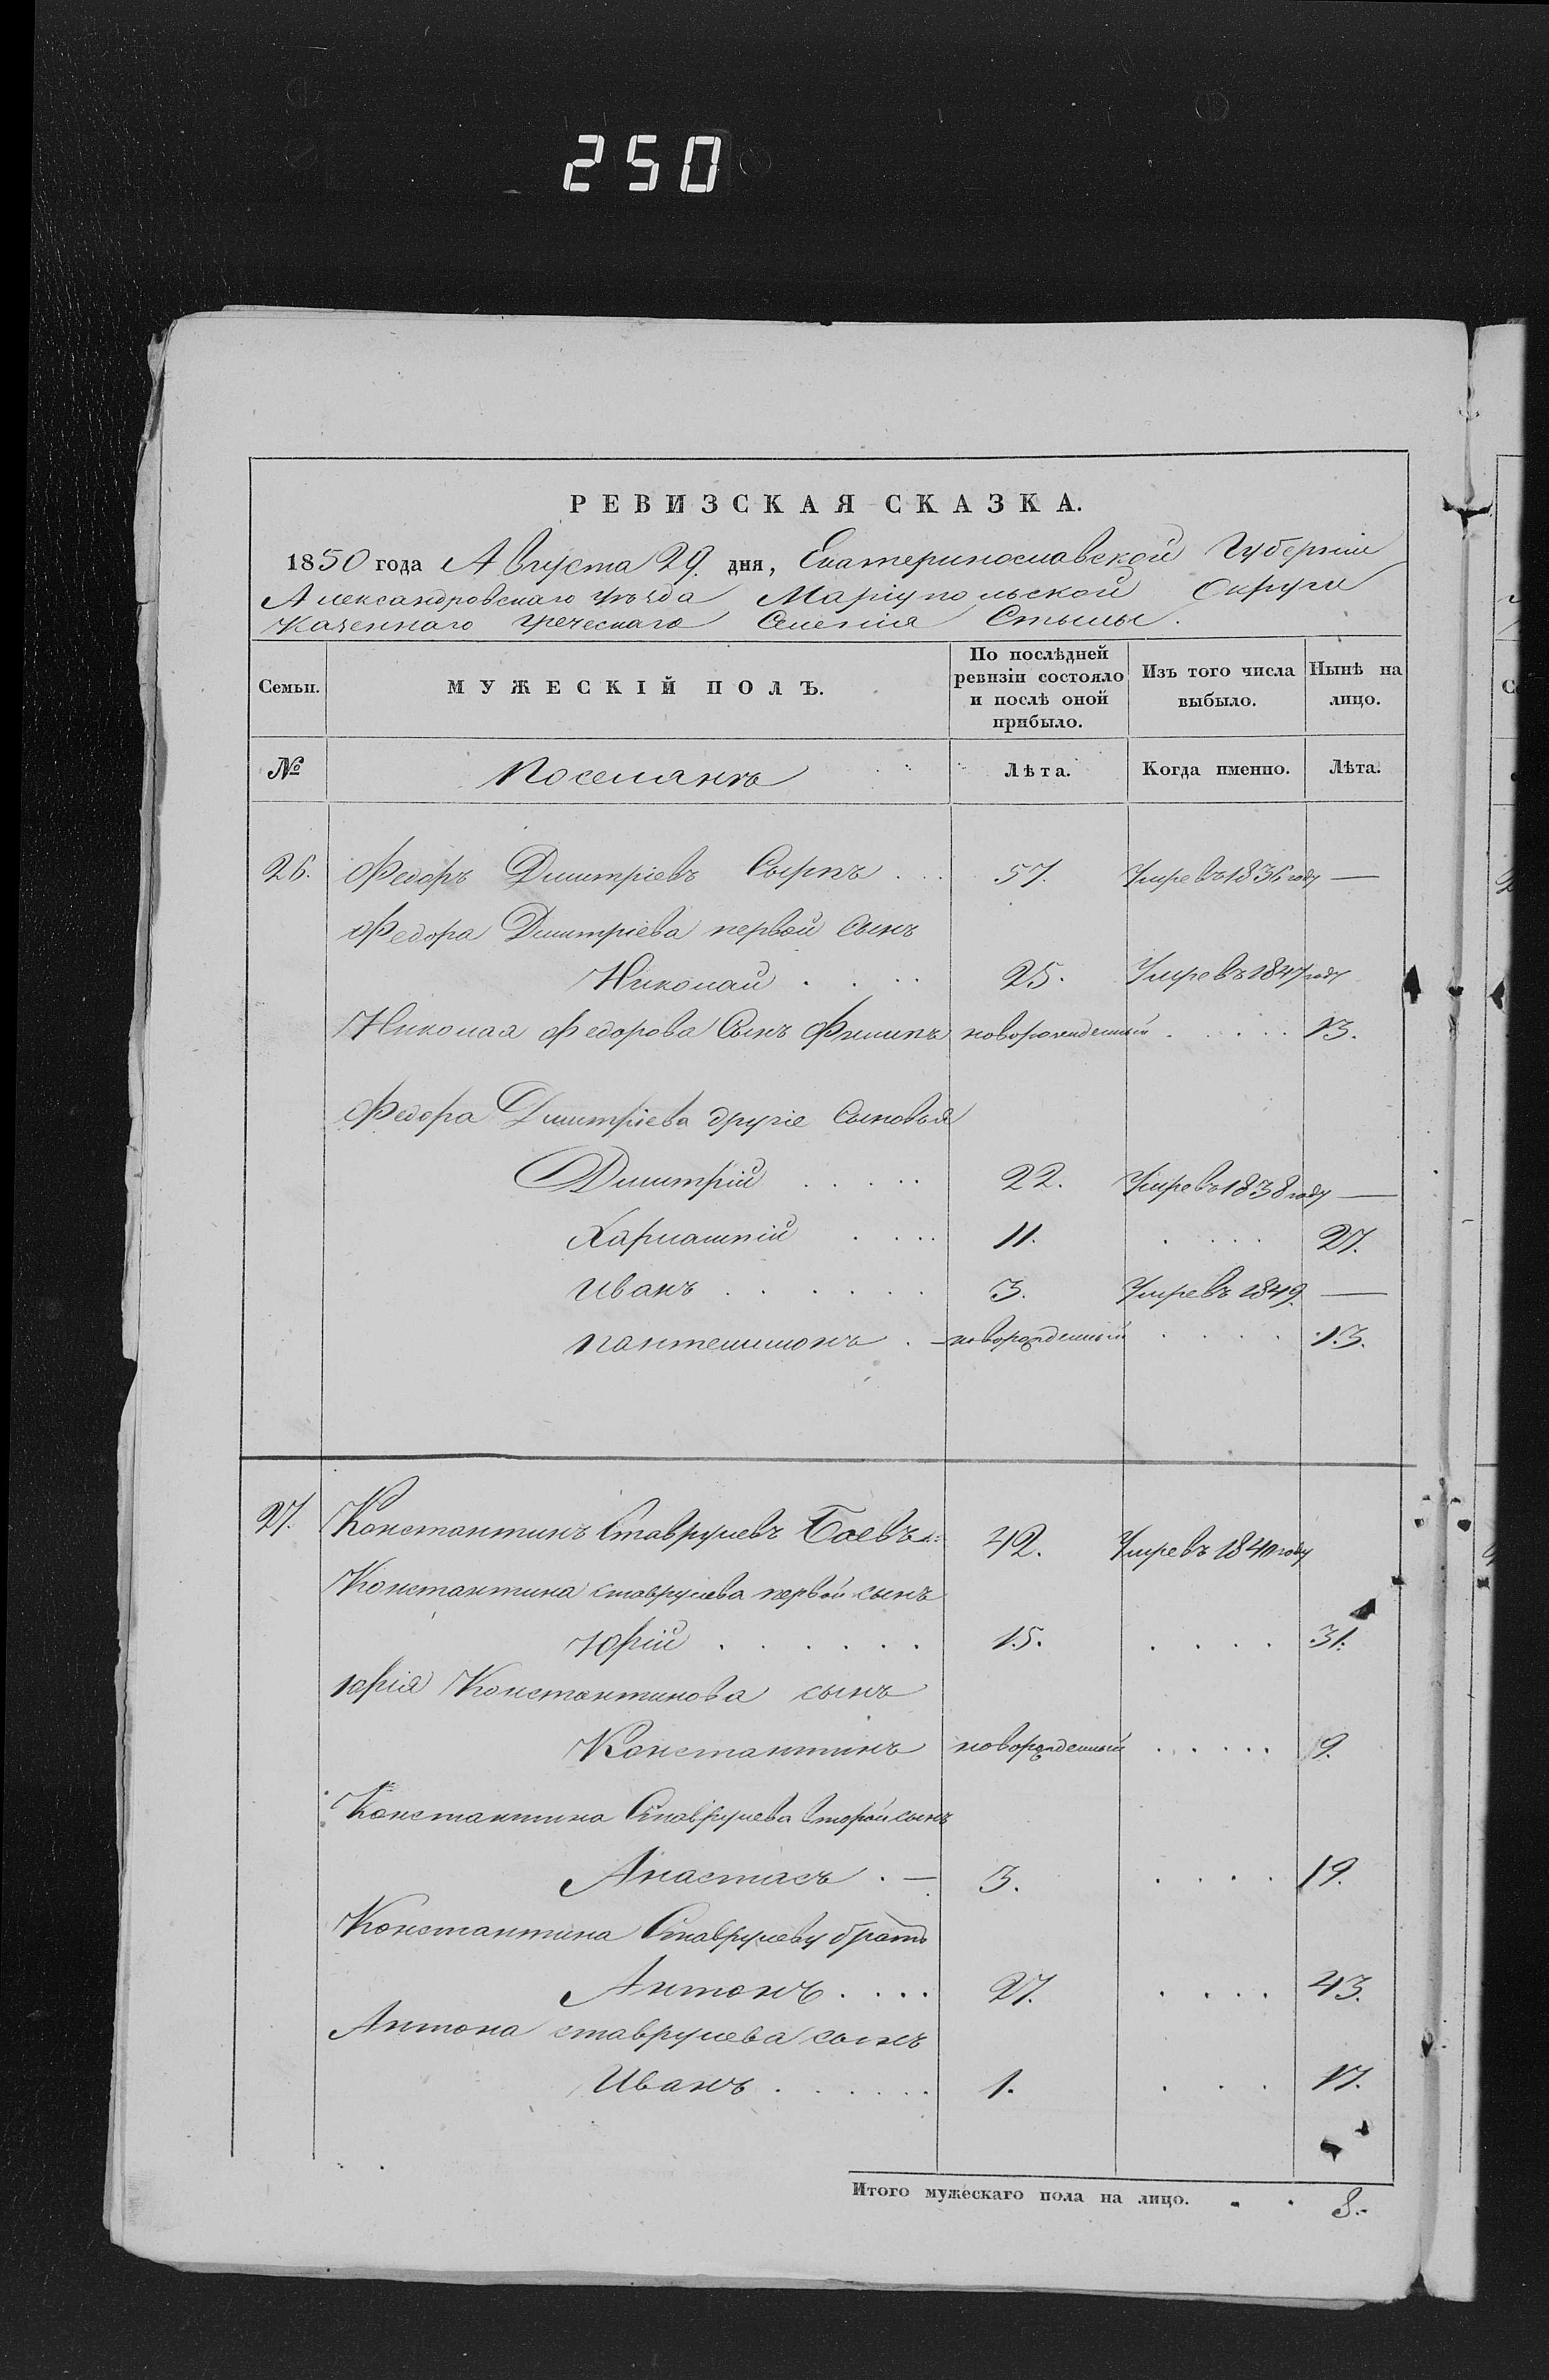 250
РЕВИЗСКАЯ СКАЗКА.
1850 года Августа 29. дня, Екатеринославской Губерніи
Александровскаго уѣзда Маріупольской Округи
Казеннаго греческаго Селенія Стылы.
Семьи. МУЖЕСКІЙ ПОЛЪ. По послѣдней ревизіи состояло и послѣ оной прибыло. Изъ того числа выбыло. Нынѣ на лицо.
№ Поселянъ Лѣта. Когда именно. Лѣта.
26. Федоръ Дмитріевъ Сырпъ . . . 57. Умре въ 1836 году —
Федора Дмитріева первой сынъ
Николай . . . . 25. Умре въ 1847 году
Николая Федорова Сынъ Филипъ новорожденный . . . . . 13.
Федора Дмитріева другіе Сыновья
Дмитрій . . . . . 22. Умре въ 1838 году —
Харлампій . . . . 11. . . . . 27.
Иванъ . . . . . . 3. Умре въ 1849. —
пантелимонъ . — новорожденный . . . . 13.
27. Константинъ Ставрулевъ Боевъ 42. Умре въ 1840 году
Константина ставрулева первой сынъ
Юрій . . . . . . 15. . . . . 31.
Юрія Константинова сынъ
Константинъ новорожденный . . . . . 9.
Константина Ставрулева второй сынъ
Анастасъ . — 3. . . . . 19.
Константина Ставрулеву братъ
Антонъ . . . . 27. . . . . 43.
Антона ставрулева сынъ
Иванъ . . . . . . 1. . . . 17.
Итого мужескаго пола на лицо. . . 8.-